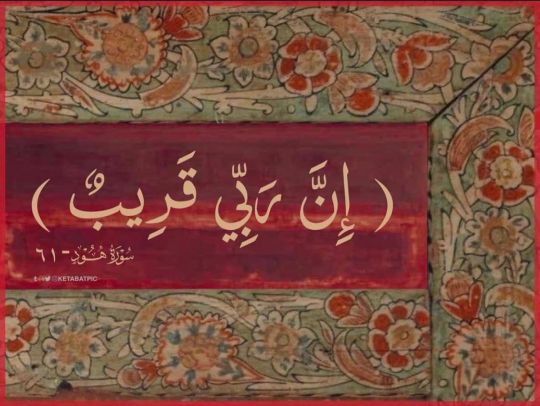 ( إِنَّ رَبِّي قَرِيبٌ )
سُورَةُ هُودٍ - ٦١
@KETABATPIC